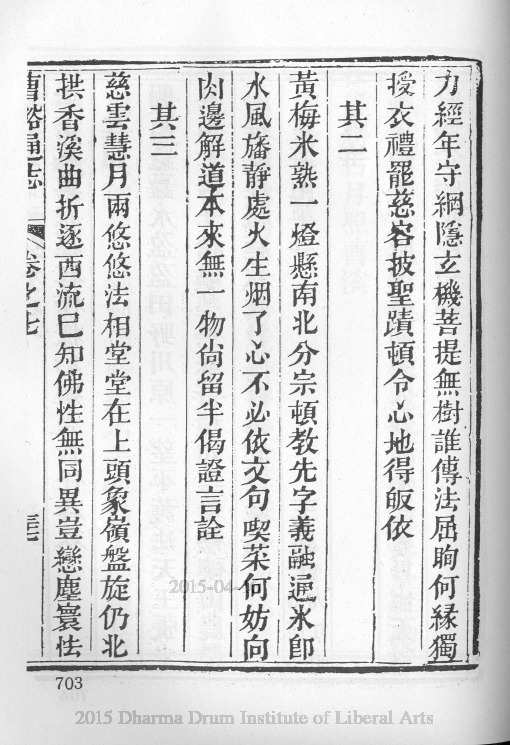 力經年守網隱玄機菩提無樹誰傳法屈眴何緣獨
授衣禮罷慈容披聖蹟頓令心地得皈依
其二
黃梅米熟一燈懸南北分宗頓教先字義融通氷即
水風旛靜處火生烟了心不必依文句喫菜何妨向
肉邊解道本來無一物尙留半偈證言詮
其三
慈雲慧月兩悠悠法相堂堂在上頭象嶺盤旋仍北
拱香溪曲折逐西流巳知佛性無同異豈戀塵寰怯
曹谿通志 卷之七
703
2015-04-
2015 Dharma Drum Institute of Liberal Arts